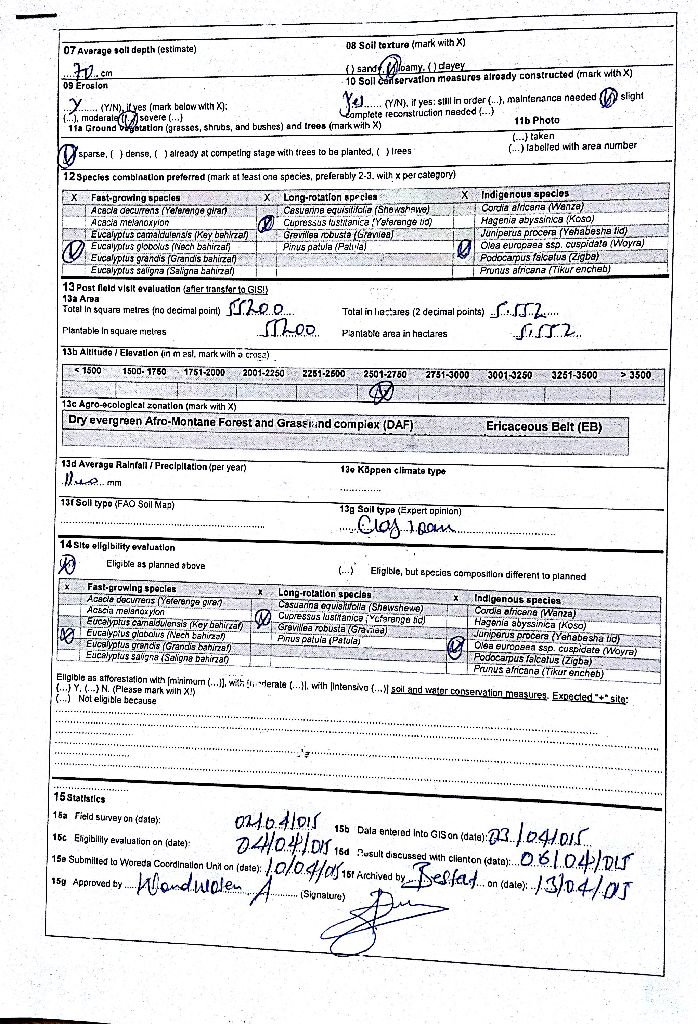 07 Average soil depth (estimate)
08 Soil texture (mark with X)
70 cm
( ) sandy, ( ) loamy, ( ) clayey
09 Erosion
10 Soil conservation measures already constructed (mark with X)
Y (Y/N), if yes (mark below with X):
Yes (Y/N), if yes: still in order (...), maintenance needed ( )
slight (...), moderate ( ) severe (...)
complete reconstruction needed (...)
11a Ground vegetation (grasses, shrubs, and bushes) and trees (mark with X)
11b Photo
(...) taken
sparse, ( ) dense, ( ) already at competing stage with trees to be planted, ( ) trees
(...) labelled with area number
12 Species combination preferred (mark at least one species, preferably 2-3. with x per category)
X Fast-growing species X Long-rotation species X Indigenous species
Acacia decurrens (Yeferenge girar) Casuarina equisitifolia (Shewshewe) Cordia africana (Wanza)
Acacia melanoxylon Cupressus lustitanica (Yeferenge tid) Hagenia abyssinica (Koso)
Eucalyptus camaldulensis (Key bahirzaf) Grevillea robusta (Gravilea) Juniperus procera (Yehabesha tid)
Eucalyptus globolus (Nech bahirzaf) Pinus patula (Patula) Olea europaea ssp. cuspidate (Woyra)
Eucalyptus grandis (Grandis bahirzaf) Podocarpus falcatus (Zigba)
Eucalyptus saligna (Saligna bahirzaf) Prunus africana (Tikur encheb)
13 Post field visit evaluation (after transfer to GIS!)
13a Area
Total in square metres (no decimal point) 55200 Total in hectares (2 decimal points) 5.552
Plantable in square metres 55200 Plantable area in hectares 5.552
13b Altitude / Elevation (in m asl, mark with a cross)
< 1500 1500- 1750 1751-2000 2001-2250 2251-2500 2501-2750 2751-3000 3001-3250 3251-3500 > 3500
13c Agro-ecological zonation (mark with X)
Dry evergreen Afro-Montane Forest and Grassland complex (DAF) Ericaceous Belt (EB)
13d Average Rainfall / Precipitation (per year)
13e Köppen climate type
mm
13f Soil type (FAO Soil Map)
13g Soil type (Expert opinion)
Clay loam
14 Site eligibility evaluation
Eligible as planned above (...) Eligible, but species composition different to planned
x Fast-growing species x Long-rotation species x Indigenous species
Acacia decurrens (Yeferenge girar) Casuarina equisitifolia (Shewshewe) Cordia africana (Wanza)
Acacia melanoxylon Cupressus lustitanica (Yeferenge tid) Hagenia abyssinica (Koso)
Eucalyptus camaldulensis (Key bahirzaf) Grevillea robusta (Gravilea) Juniperus procera (Yehabesha tid)
Eucalyptus globolus (Nech bahirzaf) Pinus patula (Patula) Olea europaea ssp. cuspidate (Woyra)
Eucalyptus grandis (Grandis bahirzaf) Podocarpus falcatus (Zigba)
Eucalyptus saligna (Saligna bahirzaf) Prunus africana (Tikur encheb)
Eligible as afforestation with [minimum (...)], with [moderate (...)], with [intensive (...)] soil and water conservation measures. Expected "+" site:
(...) Y, (...) N. (Please mark with X!)
(...) Not eligible because
15 Statistics
15a Field survey on (date): 02/04/015 15b Data entered into GIS on (date): 03/04/015
15c Eligibility evaluation on (date): 04/04/015 15d Result discussed with client on (date): 06/04/015
15e Submitted to Woreda Coordination Unit on (date): 10/04/015 15f Archived by Besfat on (date): 13/04/015
15g Approved by Wondwosen A (Signature)